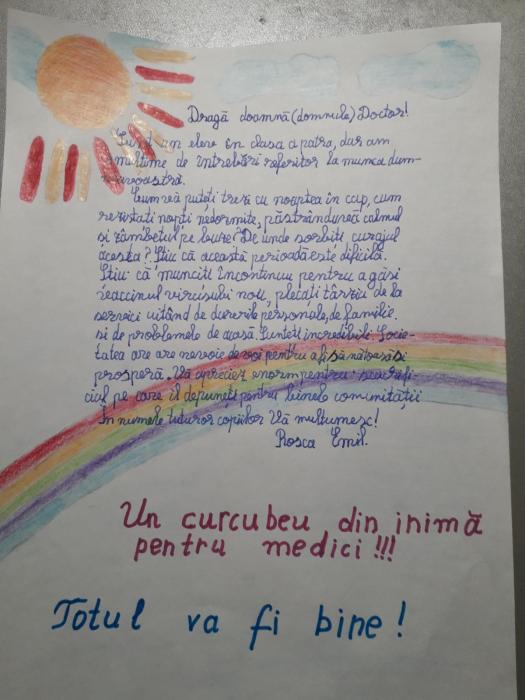 Dragă doamnă (domnule) Doctor!
Sunt un elev în clasa a patra, dar am
multime de întrebări referitor la munca dum-
neavoastră.
Cum vă puteți trezi cu noaptea în cap, cum
rezistați nopți nedormite, păstrîndu-vă calmul
și zâmbetul pe buze? De unde sorbiti curajul
acesta? Știu că această perioadă este dificilă.
Știu că munciți încontinuu pentru a găsi
vaccinul virusului nou, plecați târziu de la
serviciu uitând de durerile personale, de familie
si de problemele de acasă. Sunteți incredibili. Socie-
tatea are are nevoie de voi pentru a fi sănătoasă si
prosperă. Vă apreciez enorm pentru sacrifi-
ciul pe care îl depuneți pentru binele comunității
În numele tuturor copiilor Vă multumesc!
Rosca Emil.
Un curcubeu din inimă
pentru medici !!!
Totul va fi bine!